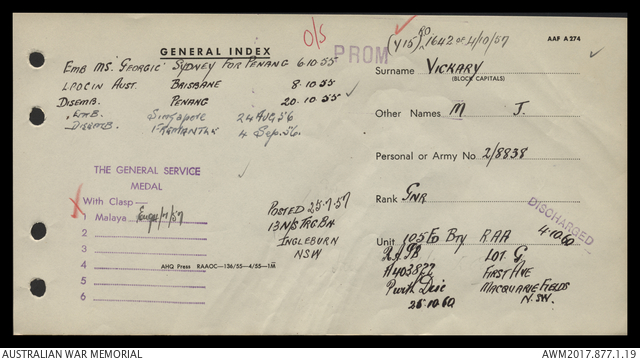 O/S
(Y15) RO 1642 of 4/10/57
AAF A 274
GENERAL INDEX
PROM
EMB MS. "GEORGIC" SYDNEY FOR PENANG 6.10.55
LPOC IN AUST. BRISBANE 8.10.55
DISEMB. PENANG 20.10.55
EMB. SINGAPORE 24 AUG 56
DISEMB. FREMANTLE 4 Sep. 56.
Surname VICKARY
(BLOCK CAPITALS)
Other Names M. J.
Personal or Army No 2/8838
Rank GNR
DISCHARGED
4.10.60
Unit 105 FD BTY RAA
THE GENERAL SERVICE
MEDAL
With Clasp—
1 Malaya
2
3
4
5
6
POSTED 25-7-57
13 N/S TRG BN
INGLEBURN
NSW
AHQ Press RAAOC—136/55—4/55—1M
LOT G
A403822 FIRST AVE
MACQUARIE FIELDS
N.S.W.
25.10.60
AUSTRALIAN WAR MEMORIAL
AWM2017.877.1.19